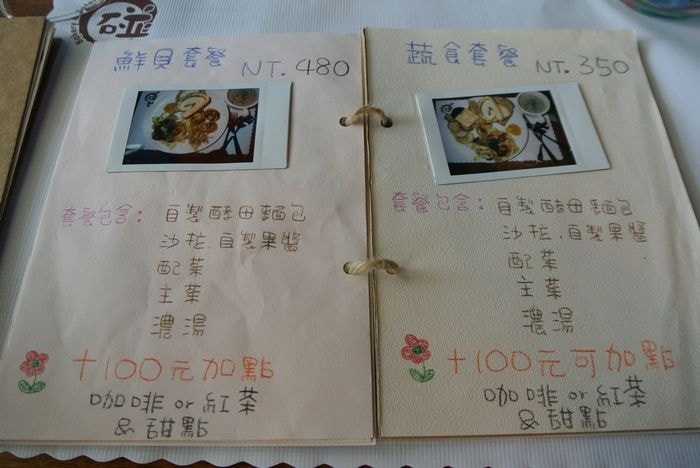 鮮貝套餐 NT. 480
套餐包含: 自製酵母麵包
沙拉.自製果醬
配菜
主菜
濃湯
+100元加點
咖啡 or 紅茶
& 甜點
蔬食套餐 NT. 350
套餐包含: 自製酵母麵包
沙拉.自製果醬
配菜
主菜
濃湯
+100元可加點
咖啡 or 紅茶
& 甜點